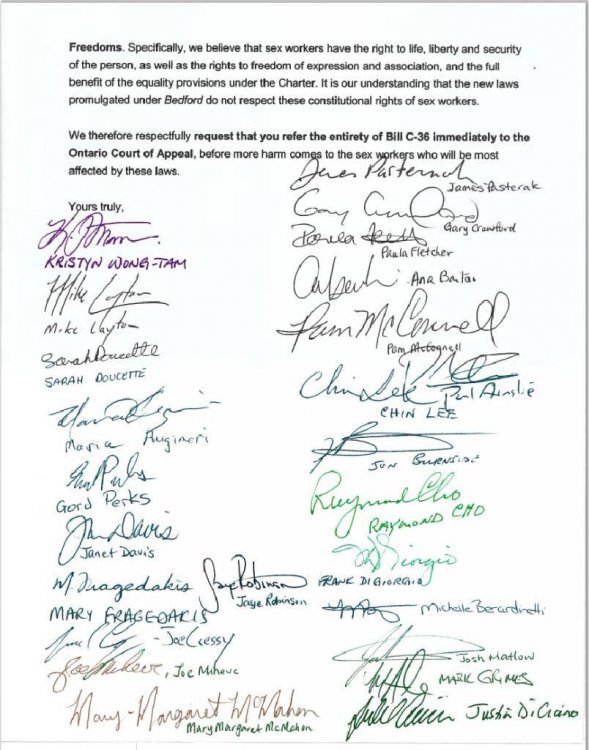 Freedoms. Specifically, we believe that sex workers have the right to life, liberty and security
of the person, as well as the rights to freedom of expression and association, and the full
benefit of the equality provisions under the Charter. It is our understanding that the new laws
promulgated under Bedford do not respect these constitutional rights of sex workers.
We therefore respectfully request that you refer the entirety of Bill C-36 immediately to the
Ontario Court of Appeal, before more harm comes to the sex workers who will be most
affected by these laws.
Yours truly,
KRISTYN WONG-TAM
Mike Layton
Mike Layton
Sarah Doucette
SARAH DOUCETTE
Maria Augimeri
Gord Perks
GORD PERKS
Janet Davis
M. Fragedakis
MARY FRAGEDAKIS
Jaye Robinson
Jaye Robinson
- Joe Cressy
Joe Mihevc, Joe Mihevc
Mary-Margaret McMahon
Mary Margaret McMahon
James Pasternak
James Pasterak
Gary Crawford
Gary Crawford
Paula Fletcher
Ana Bailão
Pam McConnell
Pam McConnell
Chin Lee
Paul Ainslie
CHIN LEE
JON BURNSIDE
Raymond Cho
RAYMOND CHO
FRANK DI GIORGIO
Michelle Berardinetti
Josh Matlow
MARK GRIMES
Justin Di Ciano